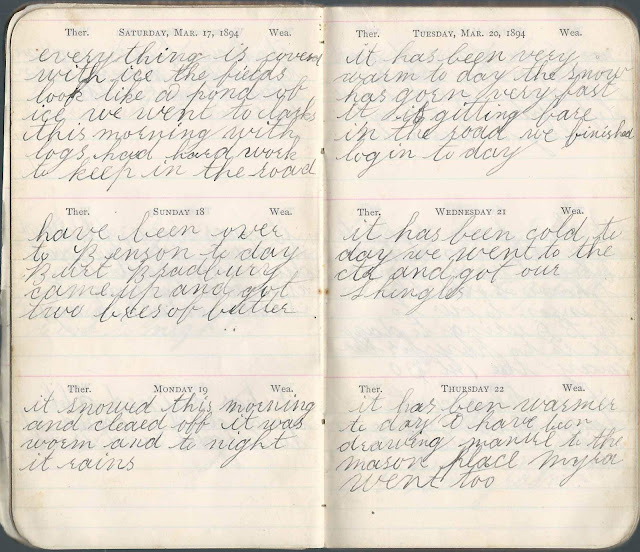 Ther. SATURDAY, MAR. 17, 1894 Wea.
every thing is coverd
with ice the fields
look like a pond of
ice we went to Larks
this morning with
logs had hard work
to keep in the road
Ther. SUNDAY 18 Wea.
have been over
to Benson to day
Burt Bradbury
came up and got
two bxes of butter
Ther. MONDAY 19 Wea.
it snowed this morning
and cleaed off it was
worm and to night
it rains
Ther. TUESDAY, MAR. 20, 1894 Wea.
it has been very
warm to day the snow
has gorn very fast
it is gitting bare
in the road we finished
login to day
Ther. WEDNESDAY 21 Wea.
it has been cold to
day we went to the
and got our
shingles
Ther. THURSDAY 22 Wea.
it has been warmer
to day i have ben
drawing manure to the
mason place Myra
went too